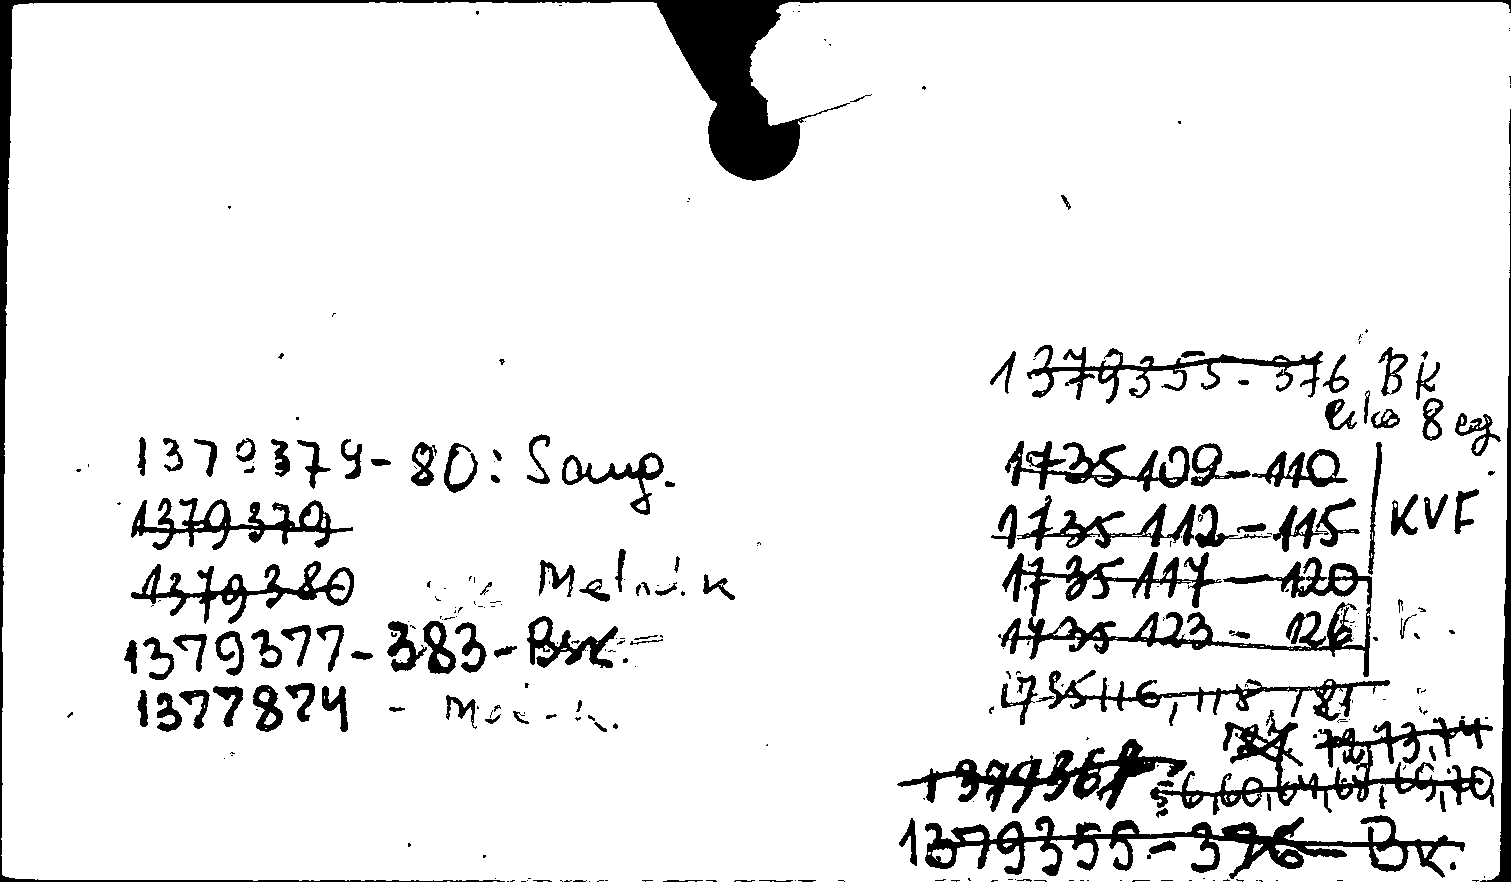 1379379-80: Saug.
1379379
1379380 Melnik
1379377-383-Bsk.
1377874 -
1379355-376 Bk
8 eg
1735109-110
1735112-115 KVF
1735117-120
1735123-126
1735116, 118, 121
72, 73, 74
56, 60, 64, 68, 69, 70,
1379355-376-Bk.